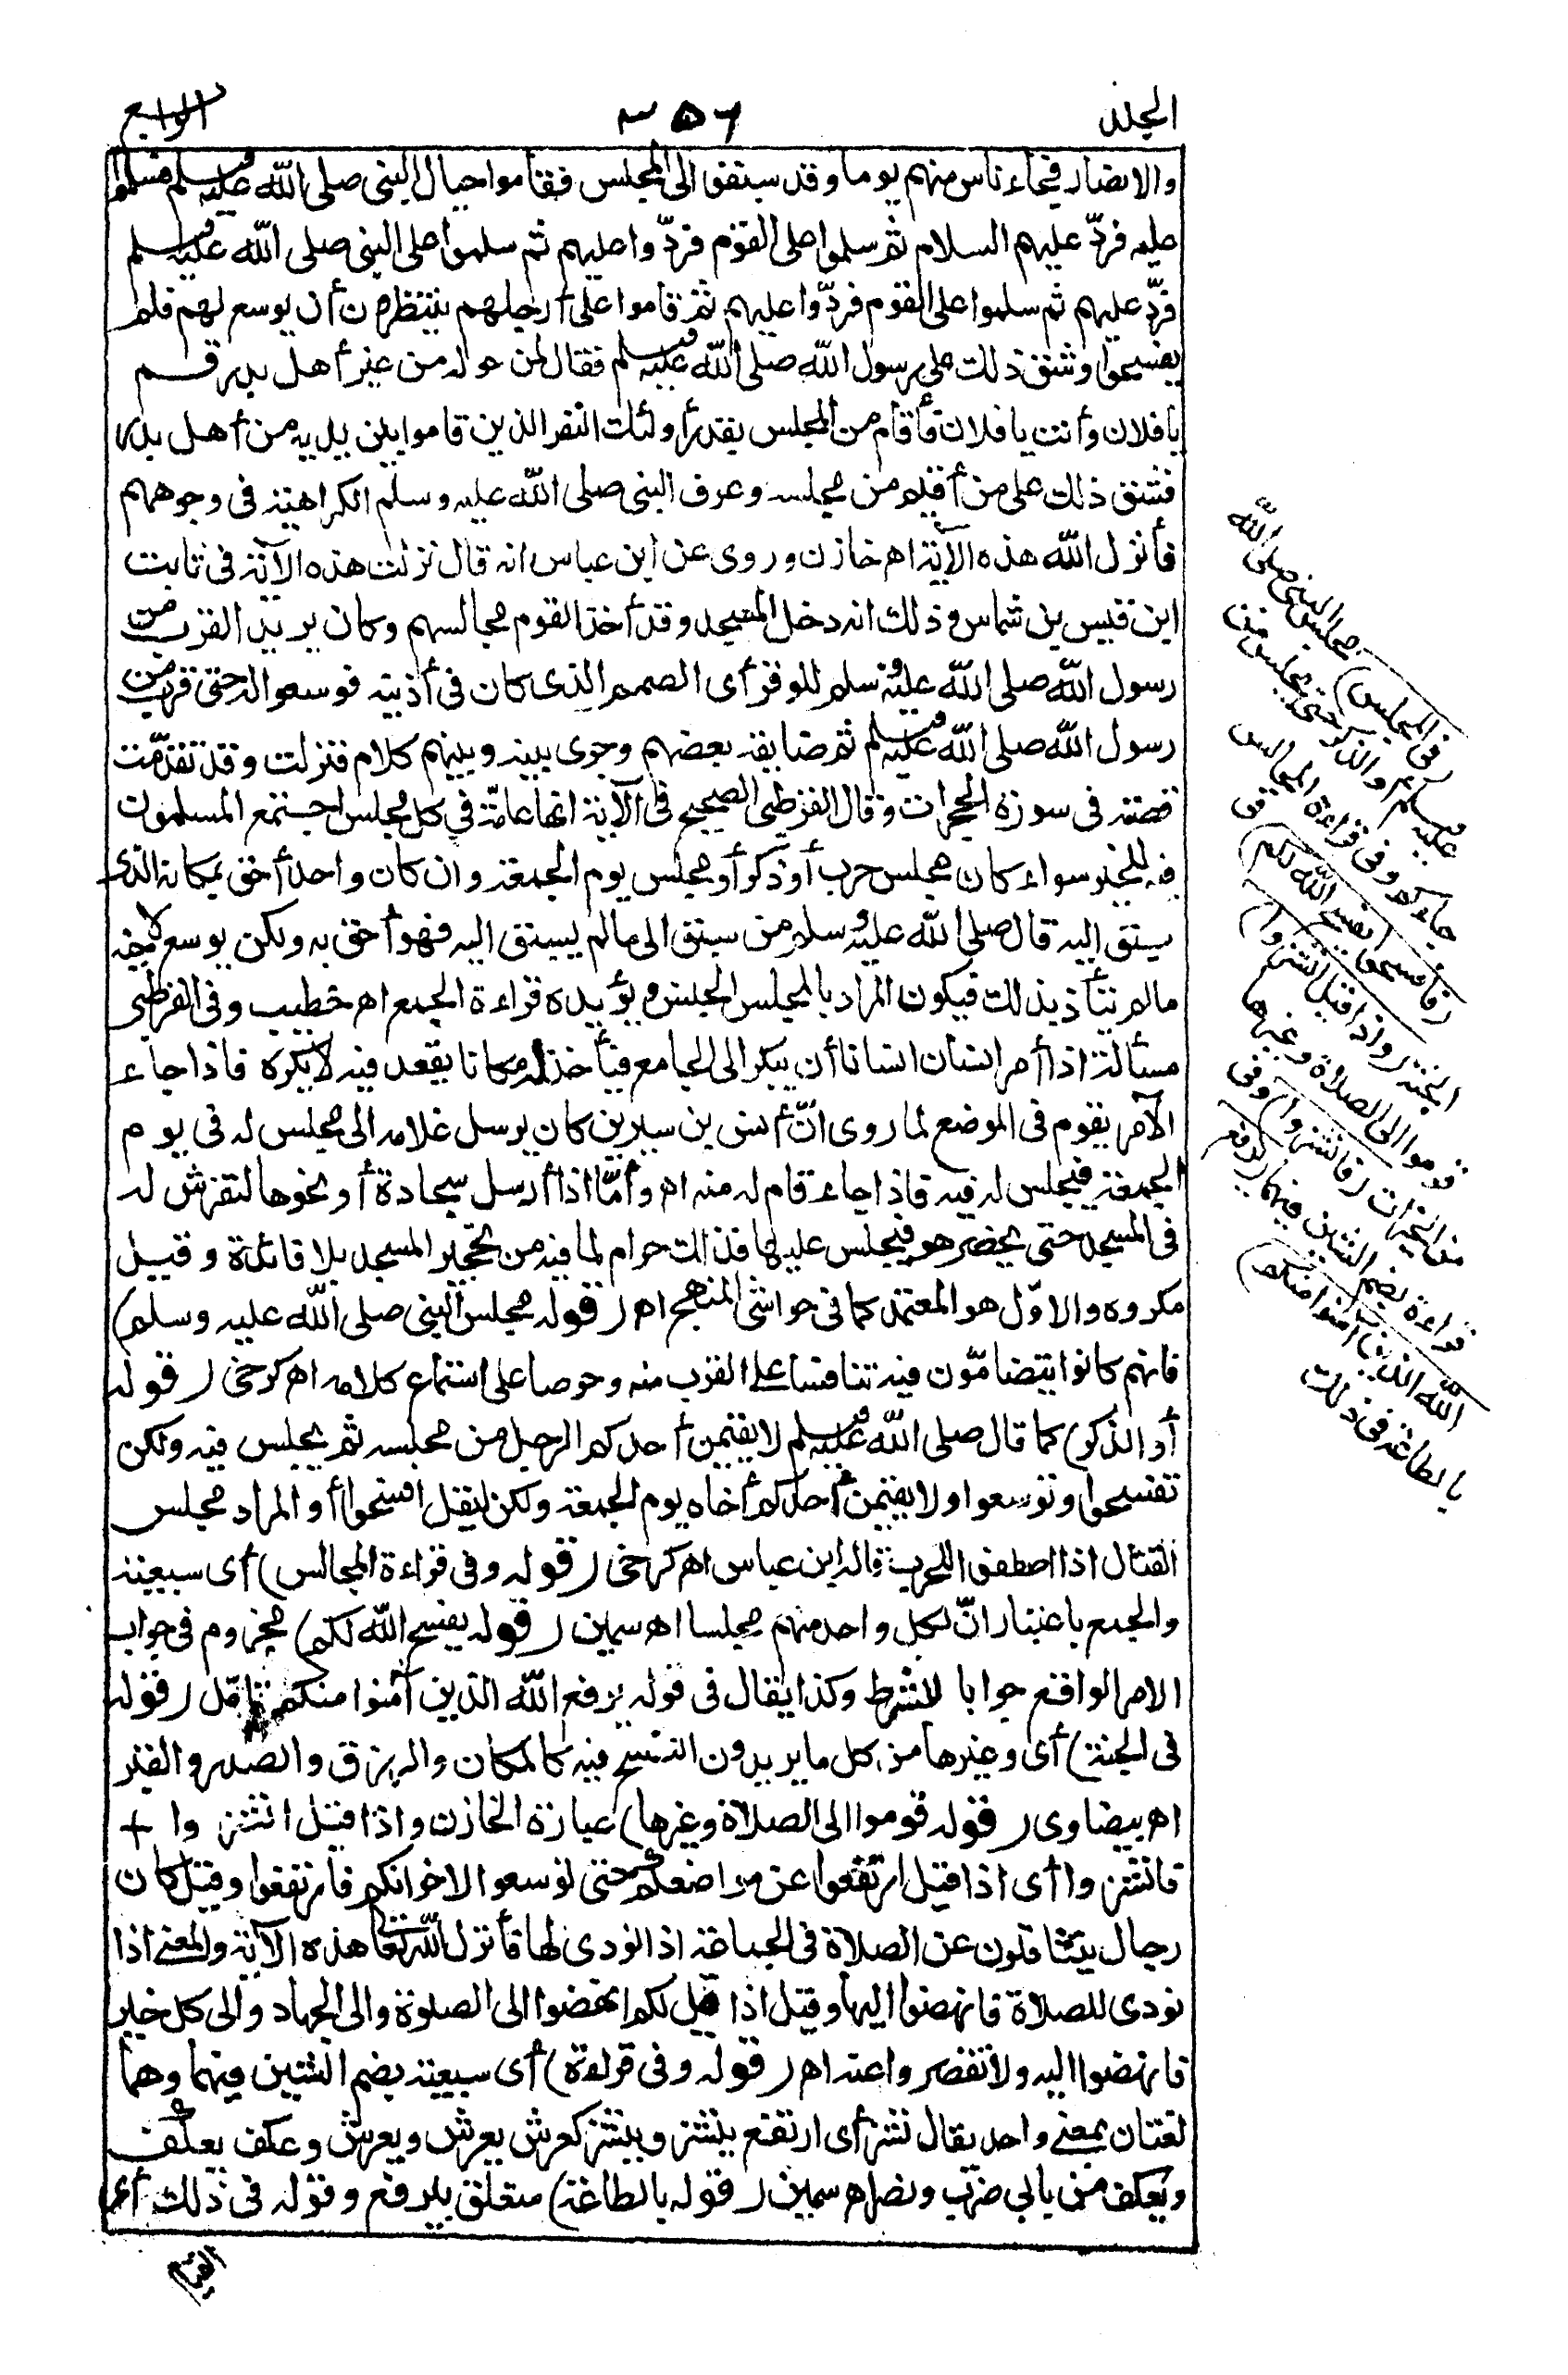 المجلد
٣٥٦
الرابع
والانصار فجاء ناس منهم يوما وقد سبقوا الى المجلس فقاموا حيال النبى صلى الله عليه وسلم فسلموا
عليه فردّ عليهم السلام ثم سلموا على القوم فردّوا عليهم ثم سلموا على النبى صلى الله عليه وسلم
فردّ عليهم ثم سلموا على القوم فردّوا عليهم ثم قاموا على أرجلهم ينتظرون أن يوسع لهم فلم
يفسحوا وشق ذلك على رسول الله صلى الله عليه وسلم فقال لمن حوله من غير أهل بدر قم
يا فلان وأنت يا فلان فأقام من المجلس بقدر أولئك النفر الذين قاموا بين يديه من أهل بدر
فشق ذلك على من أقيم من مجلسه وعرف النبى صلى الله عليه وسلم الكراهية فى وجوههم
فأنزل الله هذه الآية اھ خازن وروى عن ابن عباس انه قال نزلت هذه الآية فى ثابت
ابن قيس بن شماس وذلك انه دخل المسجد وقد أخذ القوم مجالسهم وكان يريد القرب من
رسول الله صلى الله عليه وسلم للوقر أى الصمم الذى كان فى أذنيه فوسعوا له حتى قرب من
رسول الله صلى الله عليه وسلم ثم ضايقه بعضهم وجرى بينه وبينهم كلام فنزلت وقد تقدّمت
قصته فى سورة الحجرات وقال القرطبى الصحيح فى الآية انها عامّة فى كل مجلس اجتمع المسلمون
فيه للخير سواء كان مجلس حرب أو ذكر أو مجلس يوم الجمعة وان كان واحد أحق بمكانه الذى
سبق اليه قال صلى الله عليه وسلم من سبق الى ما لم يسبق اليه فهو أحق به ولكن يوسع لاخيه
مالم يتأذ بذلك فيكون المراد بالمجلس الجنس ويؤيده قراءة الجمع اھ خطيب وفى القرطبى
مسألة اذا أمر انسان انسانا أن يبكر الى الجامع فيأخذ له مكانا يقعد فيه لا يكره فاذا جاء
الآمر يقوم فى الموضع لما روى انّ أنس بن سيرين كان يرسل غلامه الى مجلس له فى يوم
الجمعة فيجلس له فيه فاذا جاء قام له منه اھ وأمّا اذا أرسل سجادة أو نحوها لتفرش له
فى المسجد حتى يحضر هو فيجلس عليها فذلك حرام لما فيه من تحجير المسجد بلا فائدة وقيل
مكروه والاوّل هو المعتمد كما فى حواشى المنهج اھ (قوله مجلس النبى صلى الله عليه وسلم)
فانهم كانوا يتضامّون فيه تنافسا على القرب منه وحرصا على استماع كلامه اھ كرخى (قوله
أو الذكر) كما قال صلى الله عليه وسلم لا يقيمن أحدكم الرجل من مجلسه ثم يجلس فيه ولكن
تفسحوا وتوسعوا ولا يقيمن أحدكم أخاه يوم الجمعة ولكن ليقل افسحوا أو المراد مجلس
القتال اذا اصطفوا للحرب قاله ابن عباس اھ كرخى (قوله وفى قراءة المجالس) أى سبعية
والجمع باعتبار انّ لكل واحد منهم مجلسا اھ سمين (قوله يفسح الله لكم) مجزوم فى جواب
الامر الواقع جوابا للشرط وكذا يقال فى قوله يرفع الله الذين آمنوا منكم تامّل (قوله
فى الجنة) أى وغيرها من كل ما يريدون التفسح فيه كالمكان والرزق والصدر والقبر
اھ بيضاوى (قوله قوموا الى الصلاة وغيرها) عبارة الخازن واذا قيل انشزوا
فانشزوا أى اذا قيل ارتفعوا عن مواضعكم حتى توسعوا لاخوانكم فارتفعوا وقيل كان
رجال يتثاقلون عن الصلاة فى الجماعة اذا نودى لها فأنزل الله تعالى هذه الآية والمعنى اذا
نودى للصلاة فانهضوا اليها وقيل اذا قيل لكم انهضوا الى الصلوة والى الجهاد والى كل خير
فانهضوا اليه ولا تقصروا عنه اھ (قوله وفى قراءة) أى سبعية بضم الشين فيهما وهما
لغتان بمعنى واحد يقال نشز أى ارتفع ينشز وينشز كعرش يعرش ويعرش وعكف يعكف
ويعكف من بابى ضرب ونصر اھ سمين (قوله بالطاعة) متعلق بيرفع وقوله فى ذلك أى
فى المجلس) مجلس النبى صلى الله
عليه وسلم والذكر حتى يجلس من
جاءكم وفى قراءة المجالس
(فافسحوا يفسح الله لكم) فى
الجنة (واذا قيل انشزوا)
قوموا الى الصلاة وغيرها
من الخيرات (فانشزوا) وفى
قراءة بضم الشين فيهما (يرفع
الله الذين آمنوا منكم)
بالطاعة فى ذلك